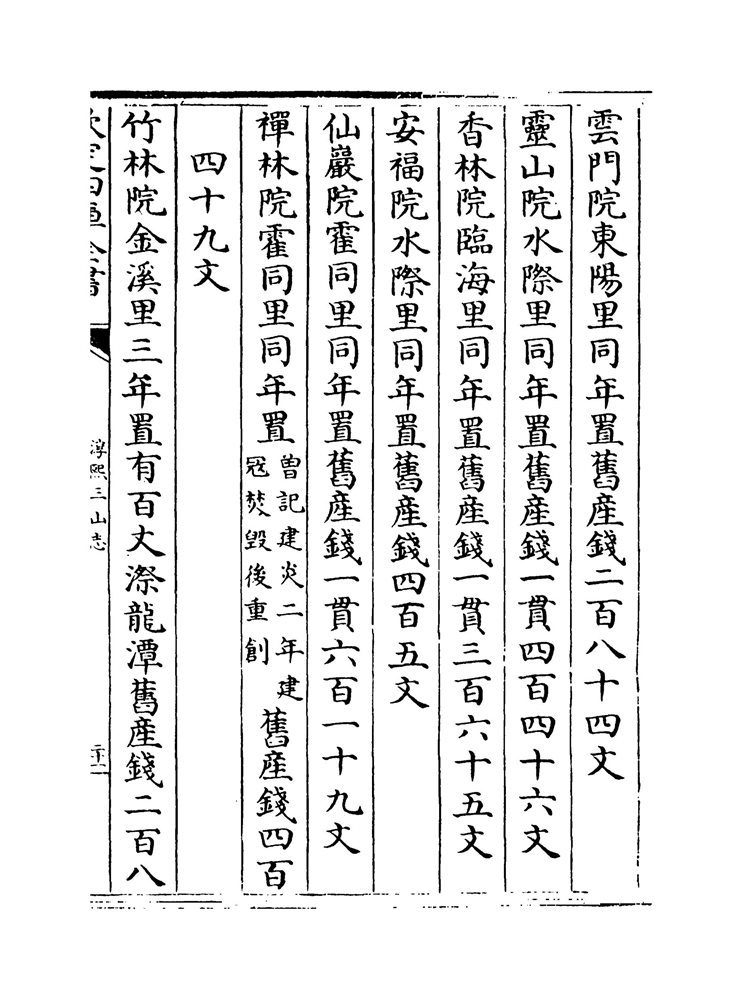 雲門院東陽里同年置舊産錢二百八十四文
靈山院水際里同年置舊産錢一貫四百四十六文
香林院臨海里同年置舊産錢一貫三百六十五文
安福院水際里同年置舊産錢四百五文
仙巖院霍同里同年置舊産錢一貫六百一十九文
禪林院霍同里同年置
曽記建炎二年建
冦焚毁後重創
舊産錢四百
四十九文
竹林院金溪里三年置有百丈漈龍潭舊産錢二百八
淳熙三山志